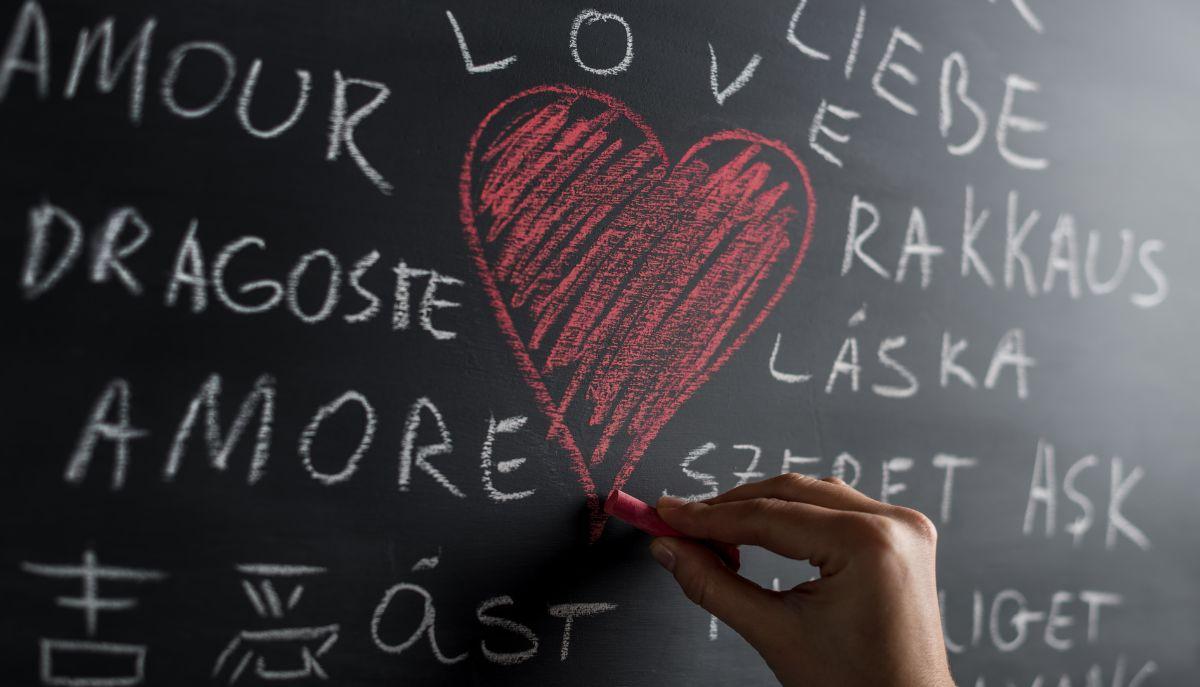 AMOUR
LOVE
LIEBE
DRAGOSTE
RAKKAUS
LÁSKA
AMORE
SZERET
ASK
吉
ÁST